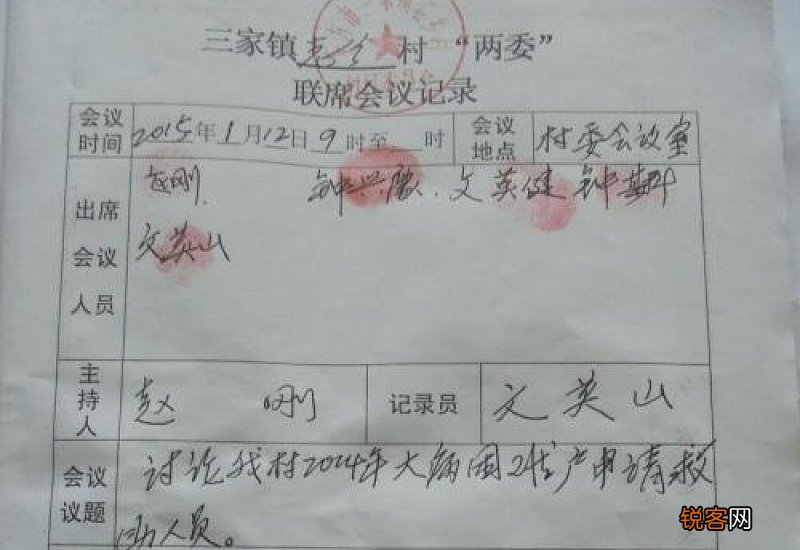 三家镇 村“两委”
联席会议记录
会议时间 2015年1月12日9时至 时 会议地点 村委会议室
出席会议人员 赵刚 钟兴 文英健 钟
文英山
主持人 赵刚 记录员 文英山
会议议题 讨论我村2014年大病困 户申请救
助人员。
锐客网